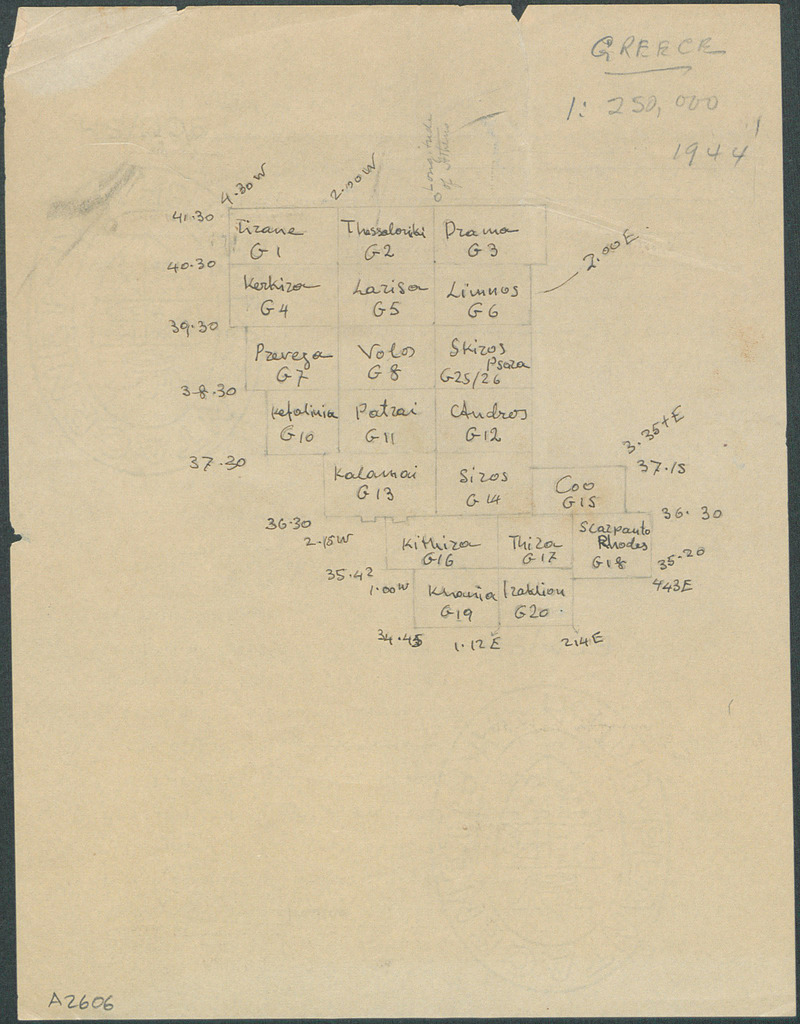 GREECE
1: 250,000
1944
4.30 W
2.00 W
0 Longitude
of Athens
41.30
Tirane
G1
Thessaloniki
G2
Drama
G3
2.00 E.
40.30
Kerkira
G4
Larisa
G5
Limnos
G6
39.30
Preveza
G7
Volos
G8
Skiros
Psara
G25/26
38.30
Kefalinia
G10
Patrai
G11
Andros
G12
3.35+E
37.30
Kalamai
G13
Siros
G14
Coo
G15
37.15
36.30
2.15W
Kithira
G16
Thira
G17
Scarpanto
Rhodes
G18
36.30
35-20
443E
35.42
1.00W
Khania
G19
Iraklion
G20
34.45
1.12 E
214E
A2606